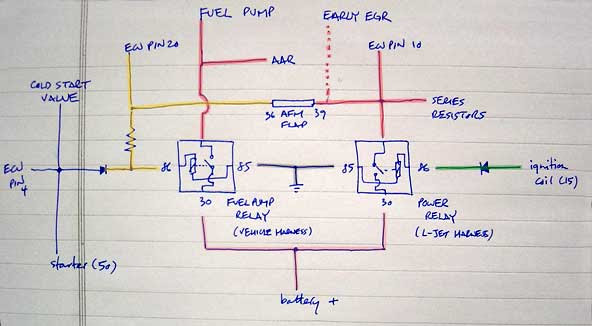 FUEL PUMP
EARLY EGR
ECU PIN 20
ECU PIN 10
AAR
COLD START
VALVE
36 AFM 39
FLAP
SERIES
RESISTORS
ECU
PIN
4
86
85
85
86
ignition
coil (15)
30
FUEL PUMP
RELAY
(VEHICLE HARNESS)
30
POWER
RELAY
(L-JET HARNESS)
starter (50)
battery +